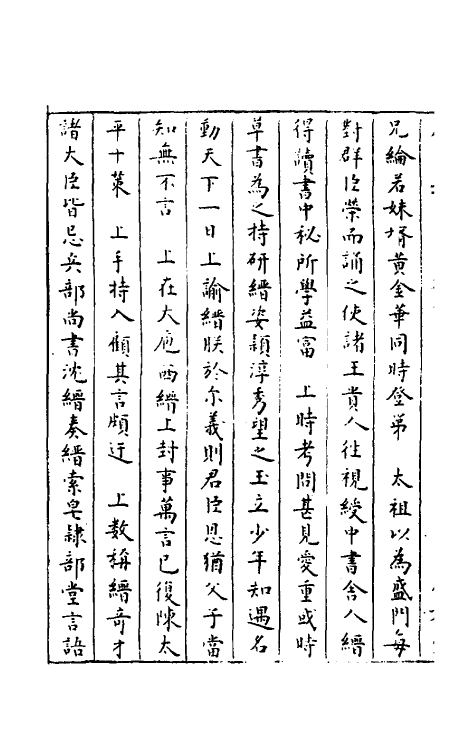 兄綸若妹壻黃金華同時登第　太祖以為盛門每
對群臣榮而誦之使諸王貴人徃視綬中書舍人縉
得讀書中秘所學益富　上時考問甚見愛重或時
草書為之持研縉姿穎淳秀望之玉立少年知遇名
動天下一日上諭縉朕於尔義則君臣恩猶父子當
知無不言　上在大庖西縉上封事萬言已復陳太
平十策　上手持入頗其言頗迂　上數稱縉奇才
諸大臣皆忌兵部尚書沈縉奏縉索皂隷部堂言語